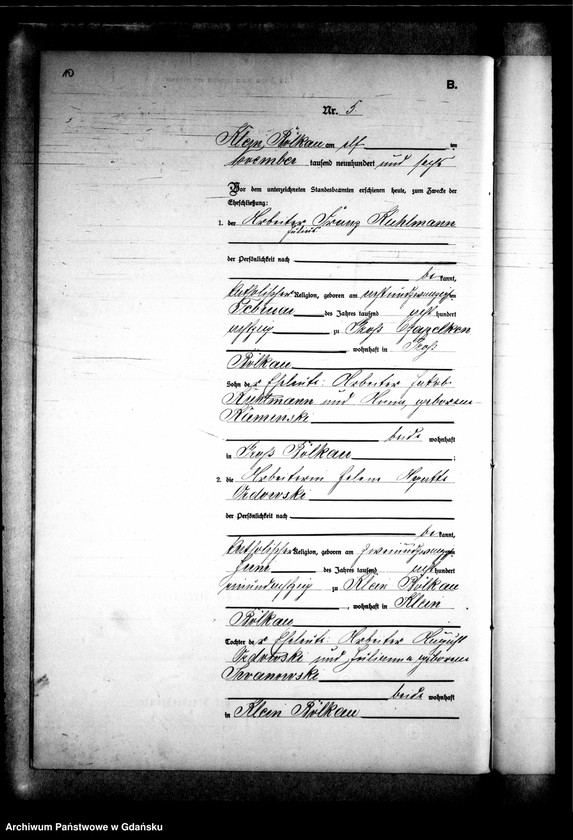 10
B.
Nr. 5.
Klein Bölkau am elf im
November tausend neunhundert und sechs
Vor dem unterzeichneten Standesbeamten erschienen heute, zum Zwecke der
Eheschließung:
1. der Arbeiter Franz Kuhlmann
Julius
der Persönlichkeit nach
be kannt,
katholischer Religion, geboren am achtundzwanzigsten
Februar des Jahres tausend acht hundert
achtzig zu Groß Czapelken
, wohnhaft in Groß
Bölkau
Sohn der Eheleute: Arbeiter Jakob
Kuhlmann und Anna, geborene
Kaminski
beide wohnhaft
in Groß Bölkau ;
2. die Arbeiterin Helene
Ordowski
der Persönlichkeit nach
be kannt,
katholischer Religion, geboren am zweiundzwanzigsten
Juni des Jahres tausend acht hundert
einundachtzig zu Klein Bölkau
, wohnhaft in Klein
Bölkau
Tochter der Eheleute: Arbeiter August
Ordowski und Julianna geborene
Iwanowski
beide wohnhaft
in Klein Bölkau
Archiwum Państwowe w Gdańsku